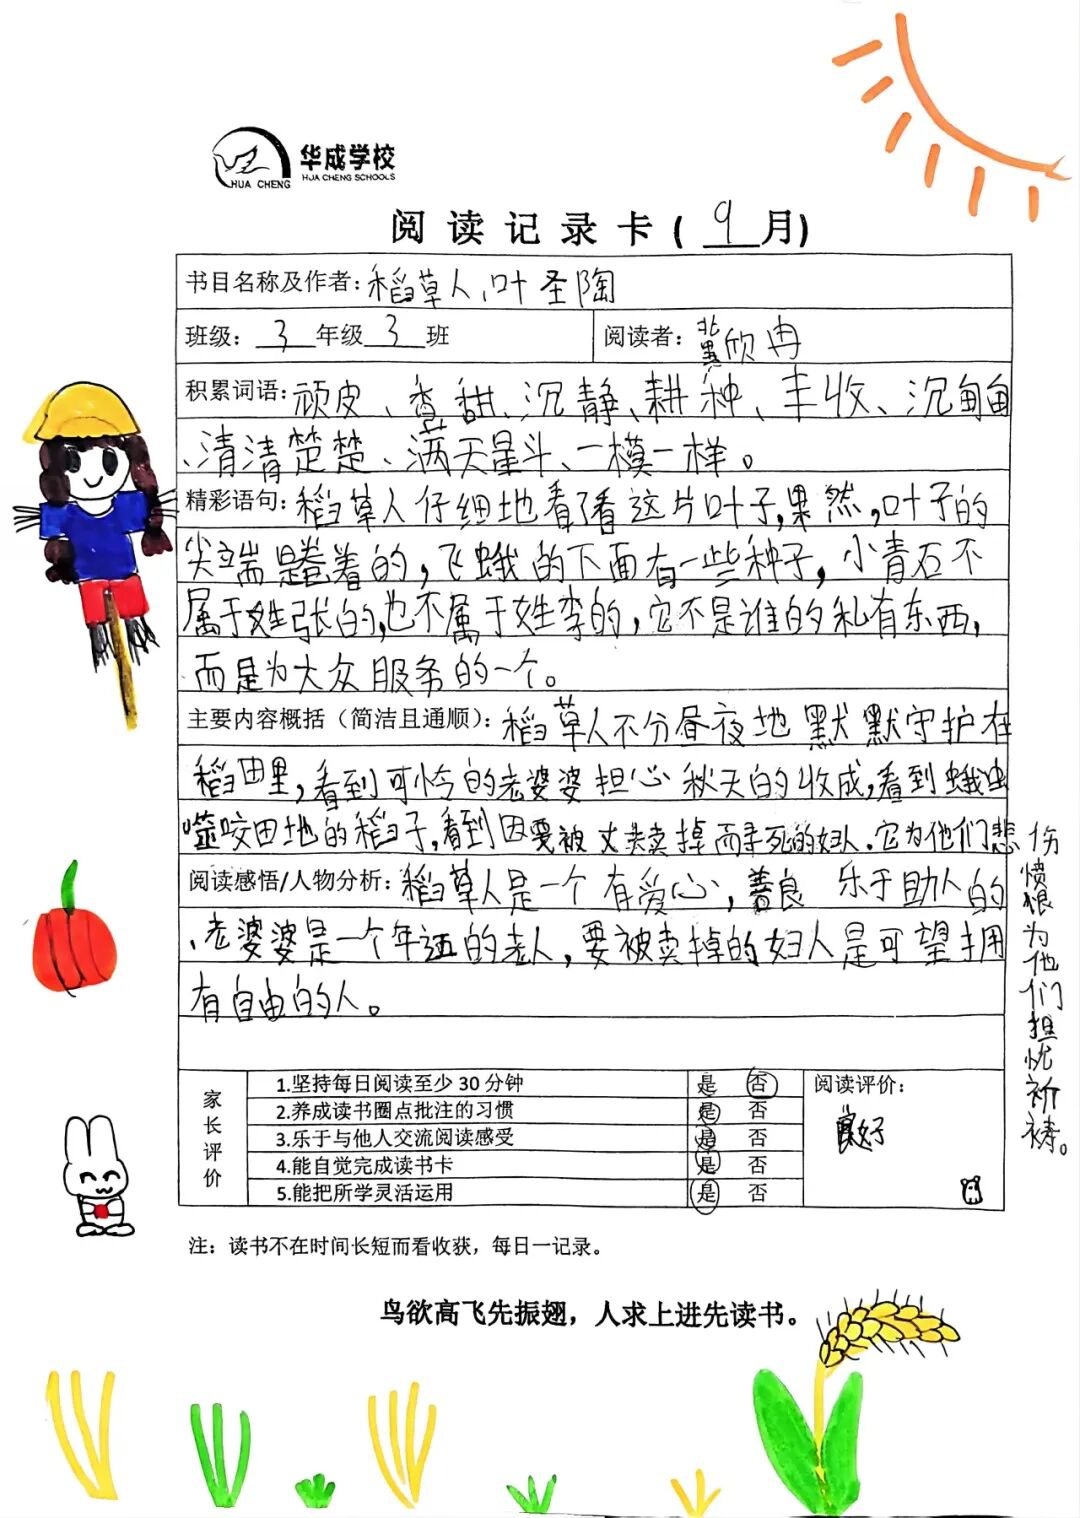 华成学校
HUA CHENG
HUA CHENG SCHOOLS
阅读记录卡(9月)
书目名称及作者:稻草人、叶圣陶
班级:3年级3班
阅读者:冀欣冉
积累词语:顽皮、香甜、沉静、耕种、丰收、沉甸甸
、清清楚楚、满天星斗、一模一样。
精彩语句:稻草人仔细地看了看这片叶子,果然,叶子的
尖端是卷着的,飞蛾的下面有一些种子,小青石不
属于姓张的,也不属于姓李的,它不是谁的私有东西,
而是为大众服务的一个。
主要内容概括(简洁且通顺):稻草人不分昼夜地默默守护在
稻田里,看到可怜的老婆婆担心秋天的收成,看到蛾虫
噬咬田地的稻子,看到因要被丈夫卖掉而寻死的妇人.它为他们悲伤
愤恨为他们担忧祈祷。
阅读感悟/人物分析:稻草人是一个有爱心,善良 乐于助人的
、老婆婆是一个年迈的老人,要被卖掉的妇人是可望拥
有自由的人。
家长评价
1.坚持每日阅读至少30分钟 是 否
2.养成读书圈点批注的习惯 是 否
3.乐于与他人交流阅读感受 是 否
4.能自觉完成读书卡 是 否
5.能把所学灵活运用 是 否
阅读评价:
良好
注:读书不在时间长短而看收获,每日一记录。
鸟欲高飞先振翅,人求上进先读书。